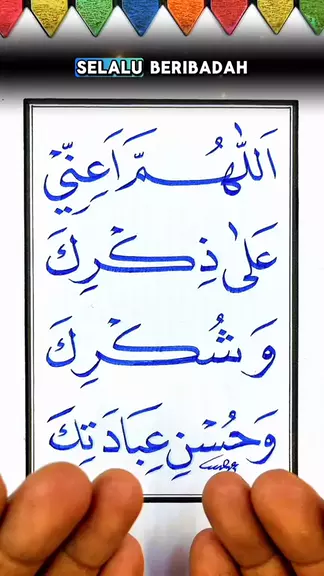 SELALU BERIBADAH
اَللّٰهُمَّ اَعِنِّيْ
عَلٰى ذِكْرِكَ
وَشُكْرِكَ
وَحُسْنِ عِبَادَتِكَ